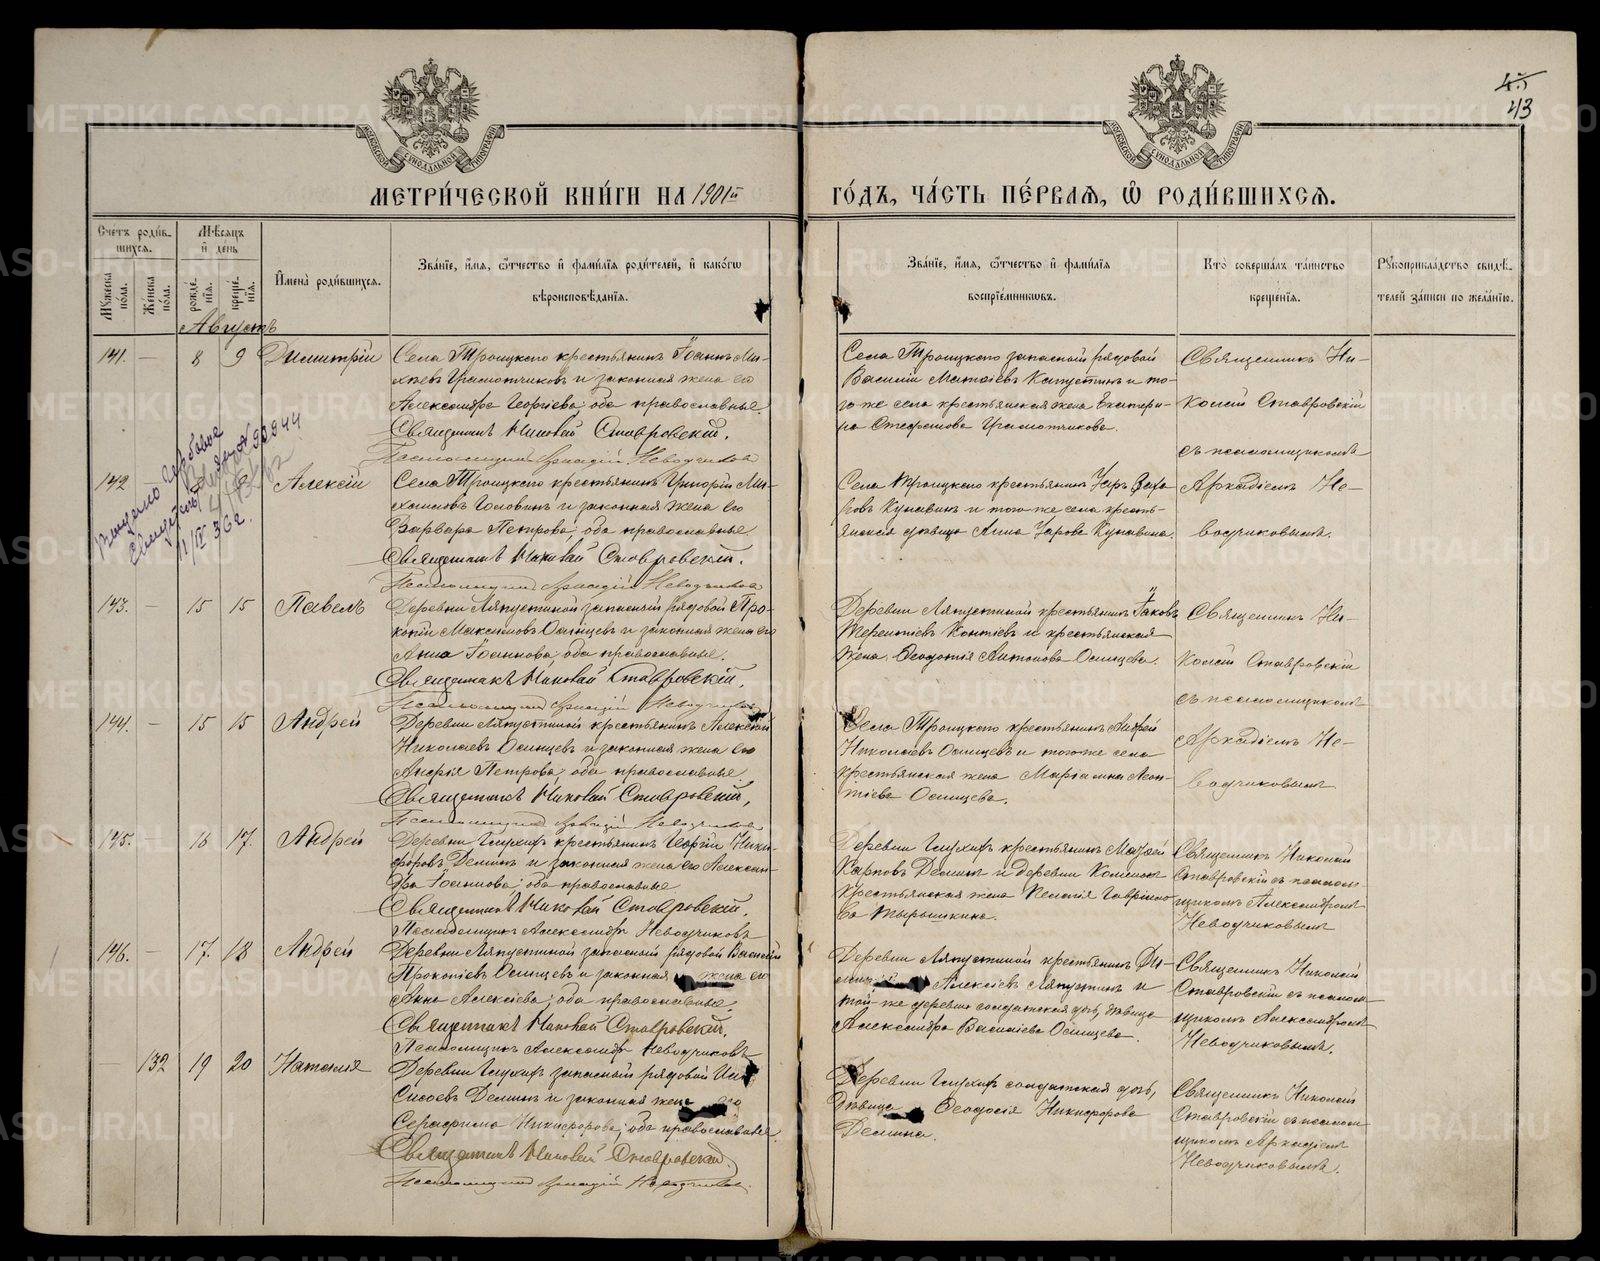 43
МЕТРИ́ЧЕСКОЙ КНИ́ГИ НА 1901й ГО́ДЪ, ЧА́СТЬ ПЕ́РВАЯ, Ѡ РОДИ́ВШИХСЯ.
МОСКОВСКОЙ СѴНОДАЛЬНОЙ ТИПОГРАФІИ
МОСКОВСКОЙ СѴНОДАЛЬНОЙ ТИПОГРАФІИ
Счетъ роди́в-
шихся.
Му́жеска по́ла.
Же́нска по́ла.
Мѣ́сяцъ
и҆ де́нь
рожде́-
нїя.
креще́-
нїя.
И҆мена̀ роди́вшихся.
Зва́нїе, и҆́мя, ѻ҆́тчество и҆ фами́лїя роди́телей, и҆ како́гѡ
вѣроисповѣ́данїя.
Зва́нїе, и҆́мя, ѻ҆́тчество и҆ фами́лїя
воспрїе́мниковъ.
Кто̀ соверша́лъ та́инство
креще́нїя.
Рꙋкоприкла́дство свидѣ́-
телей за́писи по жела́нїю.
Августъ
141. — 8 9 Димитрій
Села Троицкаго крестьянинъ Іоаннъ Ми-
хѣевъ Грамотчиковъ и законная жена его
Александра Георгіева; оба православные.
Священникъ Николай Ставровскій.
Псаломщикъ Аркадій Неводчиковъ
Села Троицкаго запасный рядовой
Василій Матѳіевъ Капустинъ и то-
го же села крестьянская жена Екатери-
на Стефанова Грамотчикова.
Священникъ Ни-
колай Ставровскій
съ псаломщикомъ
142 — 8 Алексій
Села Троицкаго крестьянинъ Григорій Ми-
хаиловъ Головинъ и законная жена его
Варвара Петрова; оба православные.
Священникъ Николай Ставровскій.
Псаломщикъ Аркадій Неводчиковъ
Села Троицкаго крестьянинъ Уаръ Заха-
ровъ Кунавинъ и того же села кресть-
янская дѣвица Анна Уарова Кунавина.
Аркадіемъ Не-
водчиковымъ.
11/IV 362.
143. — 15 15 Павелъ
Деревни Ляпустиной запасный рядовой Про-
копій Максимовъ Осинцевъ и законная жена его
Анна Іоаннова; оба православные.
Священникъ Николай Ставровскій.
Псаломщикъ Аркадій Неводчиковъ
Деревни Ляпустиной крестьянинъ Іаковъ
Терентіевъ Контіевъ и крестьянская
жена Ѳеодотія Антонова Осинцева.
Священникъ Ни-
колай Ставровскій
съ псаломщикомъ
144. — 15 15 Андрей
Деревни Ляпустиной крестьянинъ Алексій
Николаевъ Осинцевъ и законная жена его
Петрова; оба православные.
Священникъ Николай Ставровскій.
Псаломщикъ Аркадій Неводчиковъ
Села Троицкаго крестьянинъ Андрей
Николаевъ Осинцевъ и того же села
крестьянская жена Маріамна Леон-
тіева Осинцева.
Аркадіемъ Не-
водчиковымъ
145. — 16 17. Андрей
Деревни Глухихъ крестьянинъ Георгій Ники-
форовъ Деминъ и законная жена его Алексан-
дра Іоаннова; оба православные.
Священникъ Николай Ставровскій.
Псаломщикъ Александръ Неводчиковъ
Деревни Глухихъ крестьянинъ Матѳей
Карповъ Деминъ и деревни
крестьянская жена Пелагія Гаврило-
ва Тырышкина.
Священникъ Николай
Ставровскій съ псалом-
щикомъ Александромъ
Неводчиковымъ
146. — 17. 18 Андрей
Деревни Ляпустиной запасный рядовой Василій
Прокопіевъ Осинцевъ и законная жена его
Анна Алексіева; оба православные.
Священникъ Николай Ставровскій.
Псаломщикъ Александръ Неводчиковъ
Деревни Ляпустиной крестьянинъ Ди-
митрій Алексіевъ Ляпустинъ и
той же деревни солдатская дочь, дѣвица
Александра Василіева Осинцева.
Священникъ Николай
Ставровскій съ псалом-
щикомъ Александромъ
Неводчиковымъ.
— 132 19 20 Наталія
Деревни Глухихъ запасный рядовой
Сисоевъ Деминъ и законная жена его
Серафима Никифорова; оба православные.
Священникъ Николай Ставровскій.
Псаломщикъ Аркадій Неводчиковъ.
Деревни Глухихъ солдатская дочь,
дѣвица Ѳеодосія Никифорова
Демина.
Священникъ Николай
Ставровскій съ псалом-
щикомъ Аркадіемъ
Неводчиковымъ.
METRIKI.GASO-URAL.RU